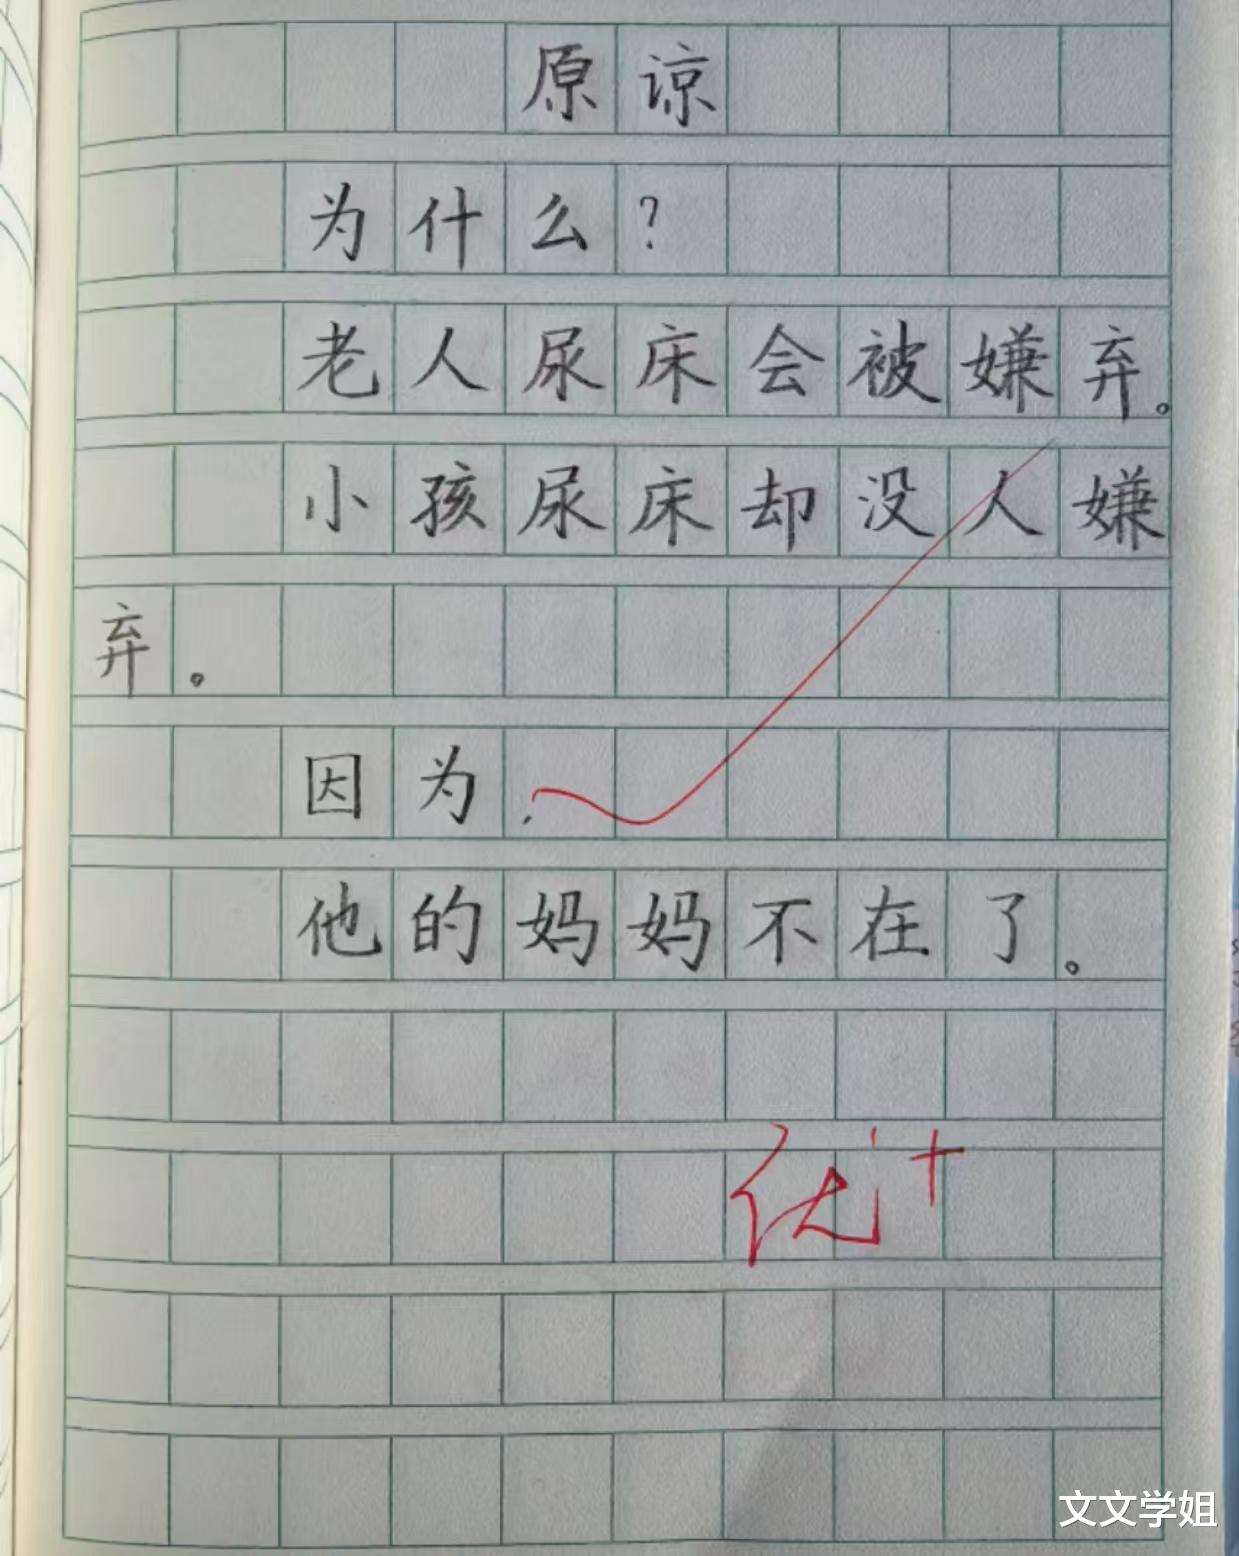 原谅
为什么?
老人尿床会被嫌弃。
小孩尿床却没人嫌
弃。
因为,
他的妈妈不在了。
优+
文文学姐